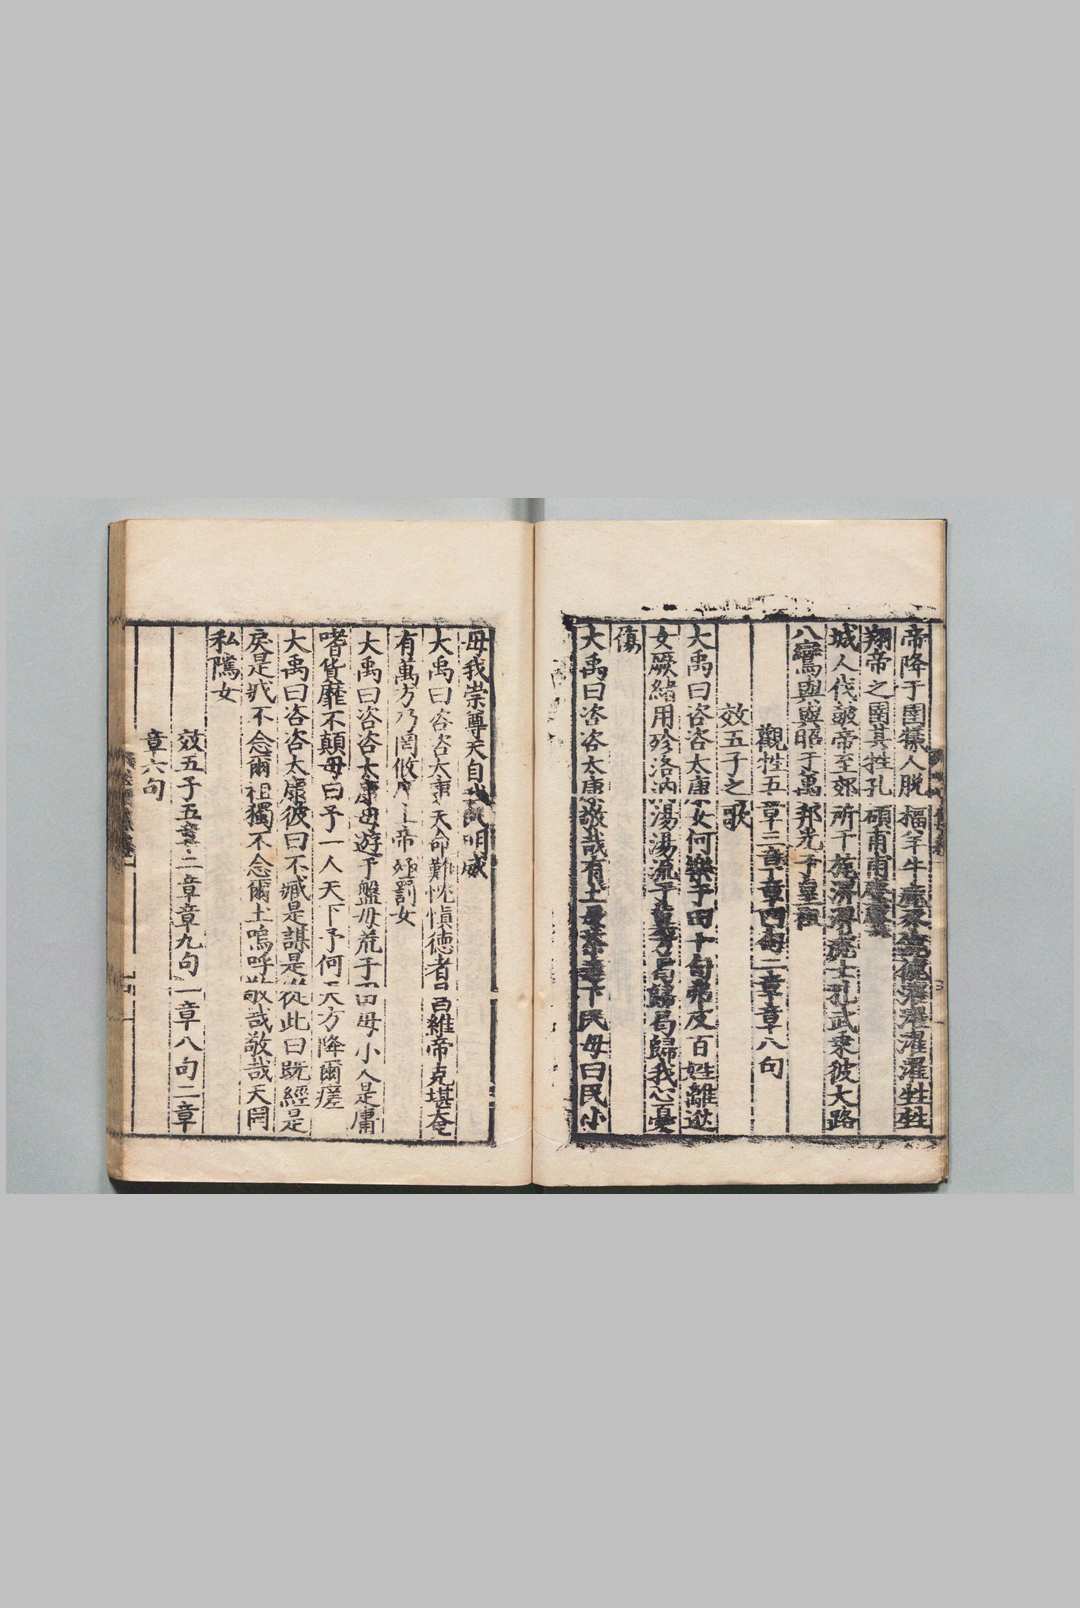 帝降于囿羡人脱楅牢牛
翔帝之囿其牲孔碩甫甫麌麌
城人伐鼓帝至郊所干旄濟濟虎士孔武乘彼大路
八鸞與與昭于萬邦光于皇祖
觀牲五章三章章四句二章章八句
效五子之歌
大禹曰咨咨太康女何樂于田十旬弗反百姓離逖
女厥緒用殄洛汭湯湯流于夏曷歸曷歸我心憂
傷
大禹曰咨咨太康敬哉有土毋荼毒下民毋曰民小
毋我崇尊天自我民明威
大禹曰咨咨太康天命難忱愼德者昌維帝克堪奄
有萬方乃罔攸上帝殛罰女
大禹曰咨咨太康毋遊于盤毋荒于田毋小人是庸
嗜貨靡不顛毋曰予一人天下予何天方降爾瘥
大禹曰咨咨太康彼曰不臧是謀是從此曰旣經是
戾是戕不念爾祖獨不念爾土嗚呼敬哉敬哉天罔
私隲女
效五子五章二章章九句一章八句二章
章六句